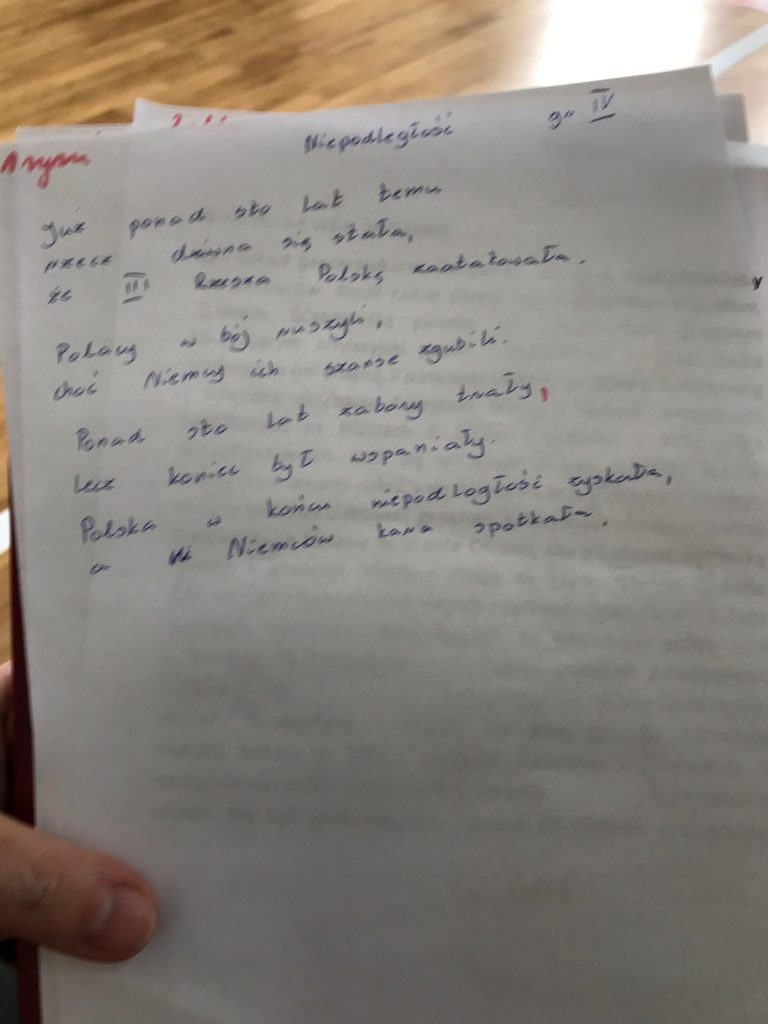 Niepodległość gr IV
Już ponad sto lat temu
rzecz dziwna się stała,
że III Rzesza Polskę zaatakowała.
Polacy w bój ruszyli,
choć Niemcy ich szanse zgubili.
Ponad sto lat zabory trwały,
lecz koniec był wspaniały.
Polska w końcu niepodległość zyskała,
a Niemców kara spotkała.